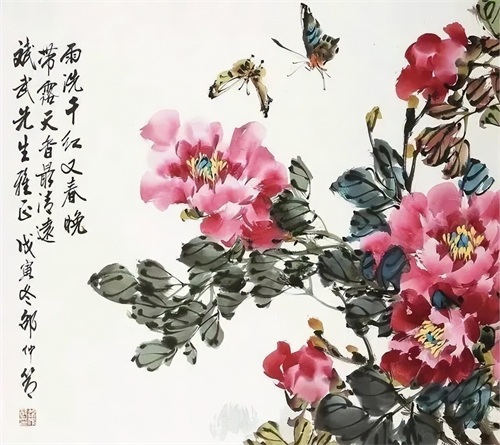 雨洗千红又春晚
带露天香最清远
斌武先生雅正 戊寅冬邹仲箐